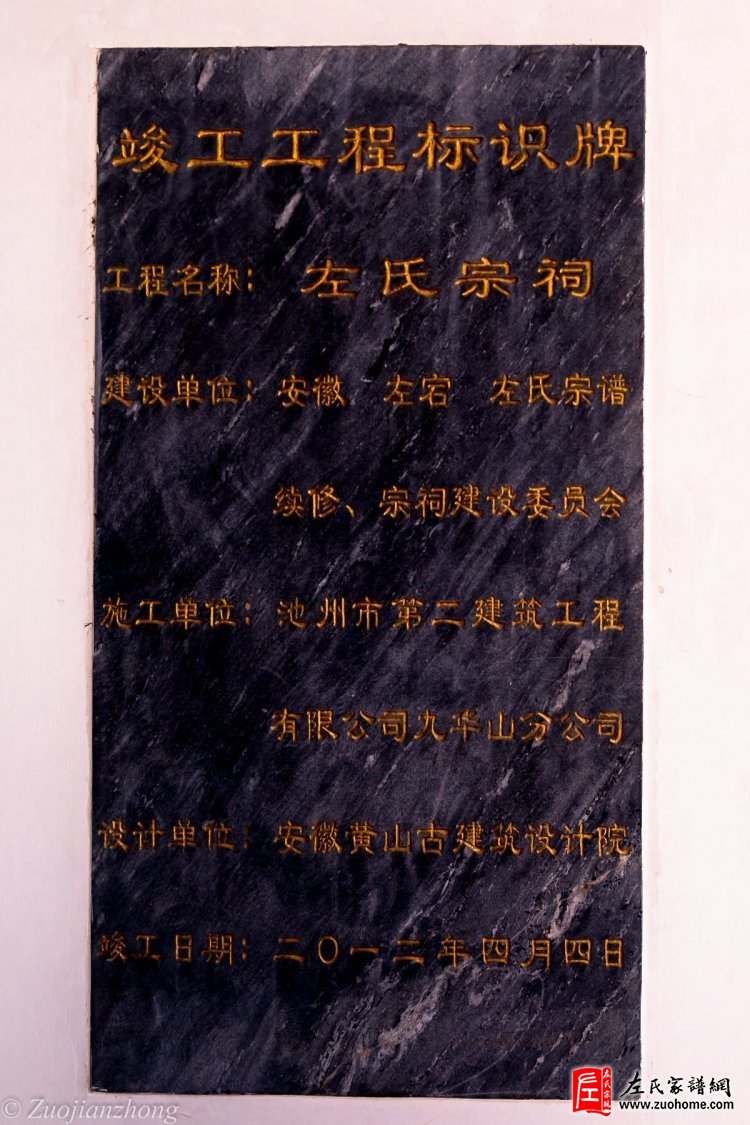 竣工工程标识牌
工程名称：左氏宗祠
建设单位：安徽 左宕 左氏宗谱
续修、宗祠建设委员会
施工单位：池州市第二建筑工程
有限公司九华山分公司
设计单位：安徽黄山古建筑设计院
竣工日期：二〇一二年四月四日
© Zuojianzhong
左氏家譜網
www.zuohome.com